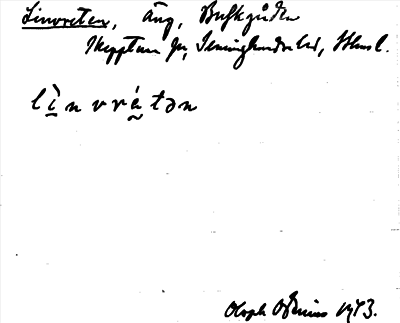 Linvreten, Äng, Buskgården
Skepptuna sn, Seminghundra hd, Uppl.
l ì n v r é t ə n
Oloph Odenius 1973.